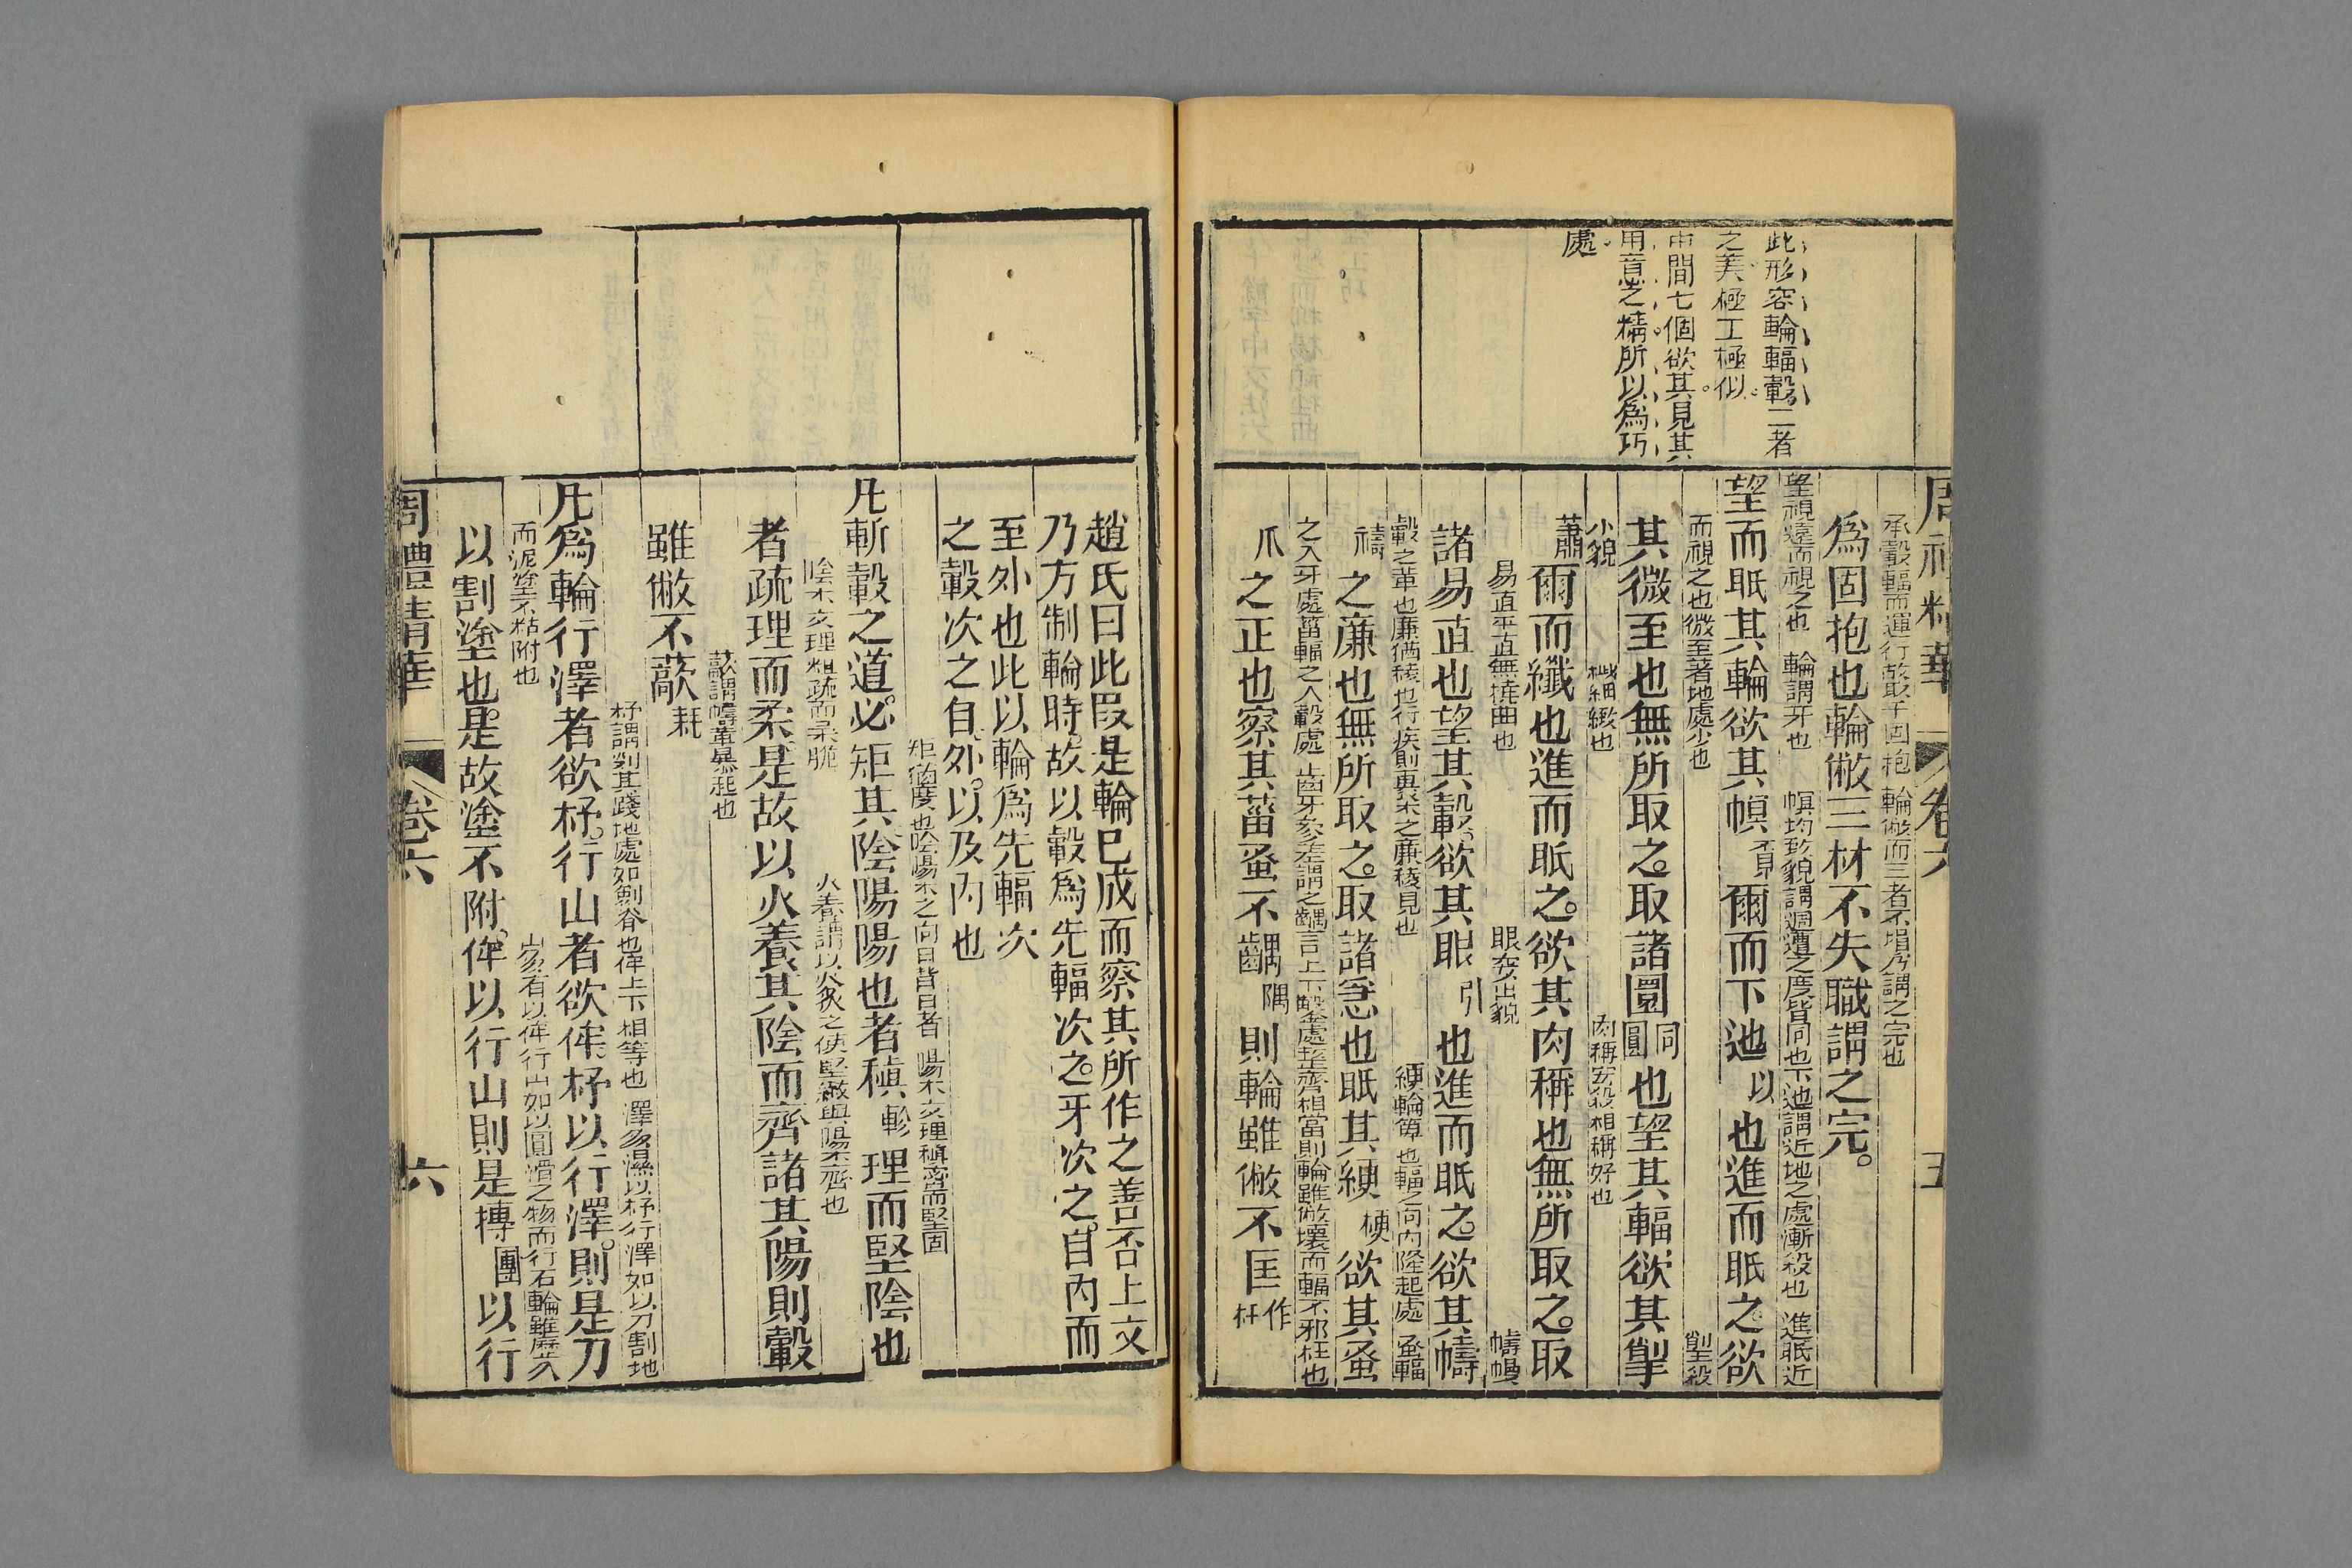 周禮精華
卷六
五
此形容輪輻轂三者
之美極工極似
中間七個欲其見其
用意之精所以爲巧
處
承轂輻而運行故取乎固抱 輪倣而三者不壞乃謂之完也
爲固抱也輪倣三材不失職謂之完
望視遠而視之也 輪謂牙也 幎均致貌謂週遭之度皆同也下迆謂近地之處漸殺也 進眂近
望而眂其輪欲其幎覓爾而下迆以也進而眂之欲
而視之也微至著地處少也 掣殺
其微至也無所取之取諸圜同圓也望其輻欲其掣
小貌 纖細緻也 肉稱弘殺相稱好也
蕭爾而纖也進而眂之欲其肉稱也無所取之取
易直平直無撓曲也 眼突出貌 幬幔
諸易直也望其轂欲其眼引也進而眂之欲其幬
轂之革也廉猶稜也行疾則裹木之廉稜見也 綆輪箄也輻之向內隆起處 蚤輻
禱之廉也無所取之取諸急也眂其綆梗欲其蚤
之入牙處菑輻之入轂處 齒牙參差謂之齵言上下鑿處整齊相當則輪雖倣壞而輻不邪枉也
爪之正也察其菑蚤不齵隅則輪雖倣不匡作枉
趙氏曰此叚是輪已成而察其所作之善否上文
乃方制輪時故以轂爲先輻次之牙次之自內而
至外也此以輪爲先輻次
之轂次之自外以及內也
矩猶度也陰陽木之向日背日者 陽木文理稹密而堅固
凡斬轂之道必矩其陰陽陽也者稹軫理而堅陰也
陰木文理粗疏而柔脆 火養謂以火炙之使堅緻與陽木齊也
者疏理而柔是故以火養其陰而齊諸其陽則轂
蔌謂幬革暴起也
雖倣不蔌耗
杼謂削其踐地處如劍脊也侔上下相等也 澤多濕以杼行澤如以刀割地
凡爲輪行澤者欲杼行山者欲侔杼以行澤則是刀
而泥塗不粘附也 山多有以侔行山如以圓滑之物而行石輪雖歷久
以割塗也是故塗不附侔以行山則是摶團以行
周禮精華
卷六
六